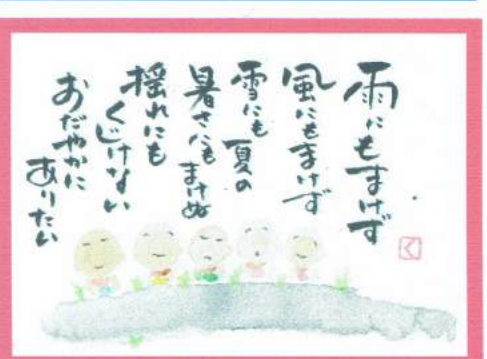 雨にもまけず
風にもまけず
雪にも夏の
暑さにもまけぬ
揺れにも
くじけない
おだやかに
ありたい
く